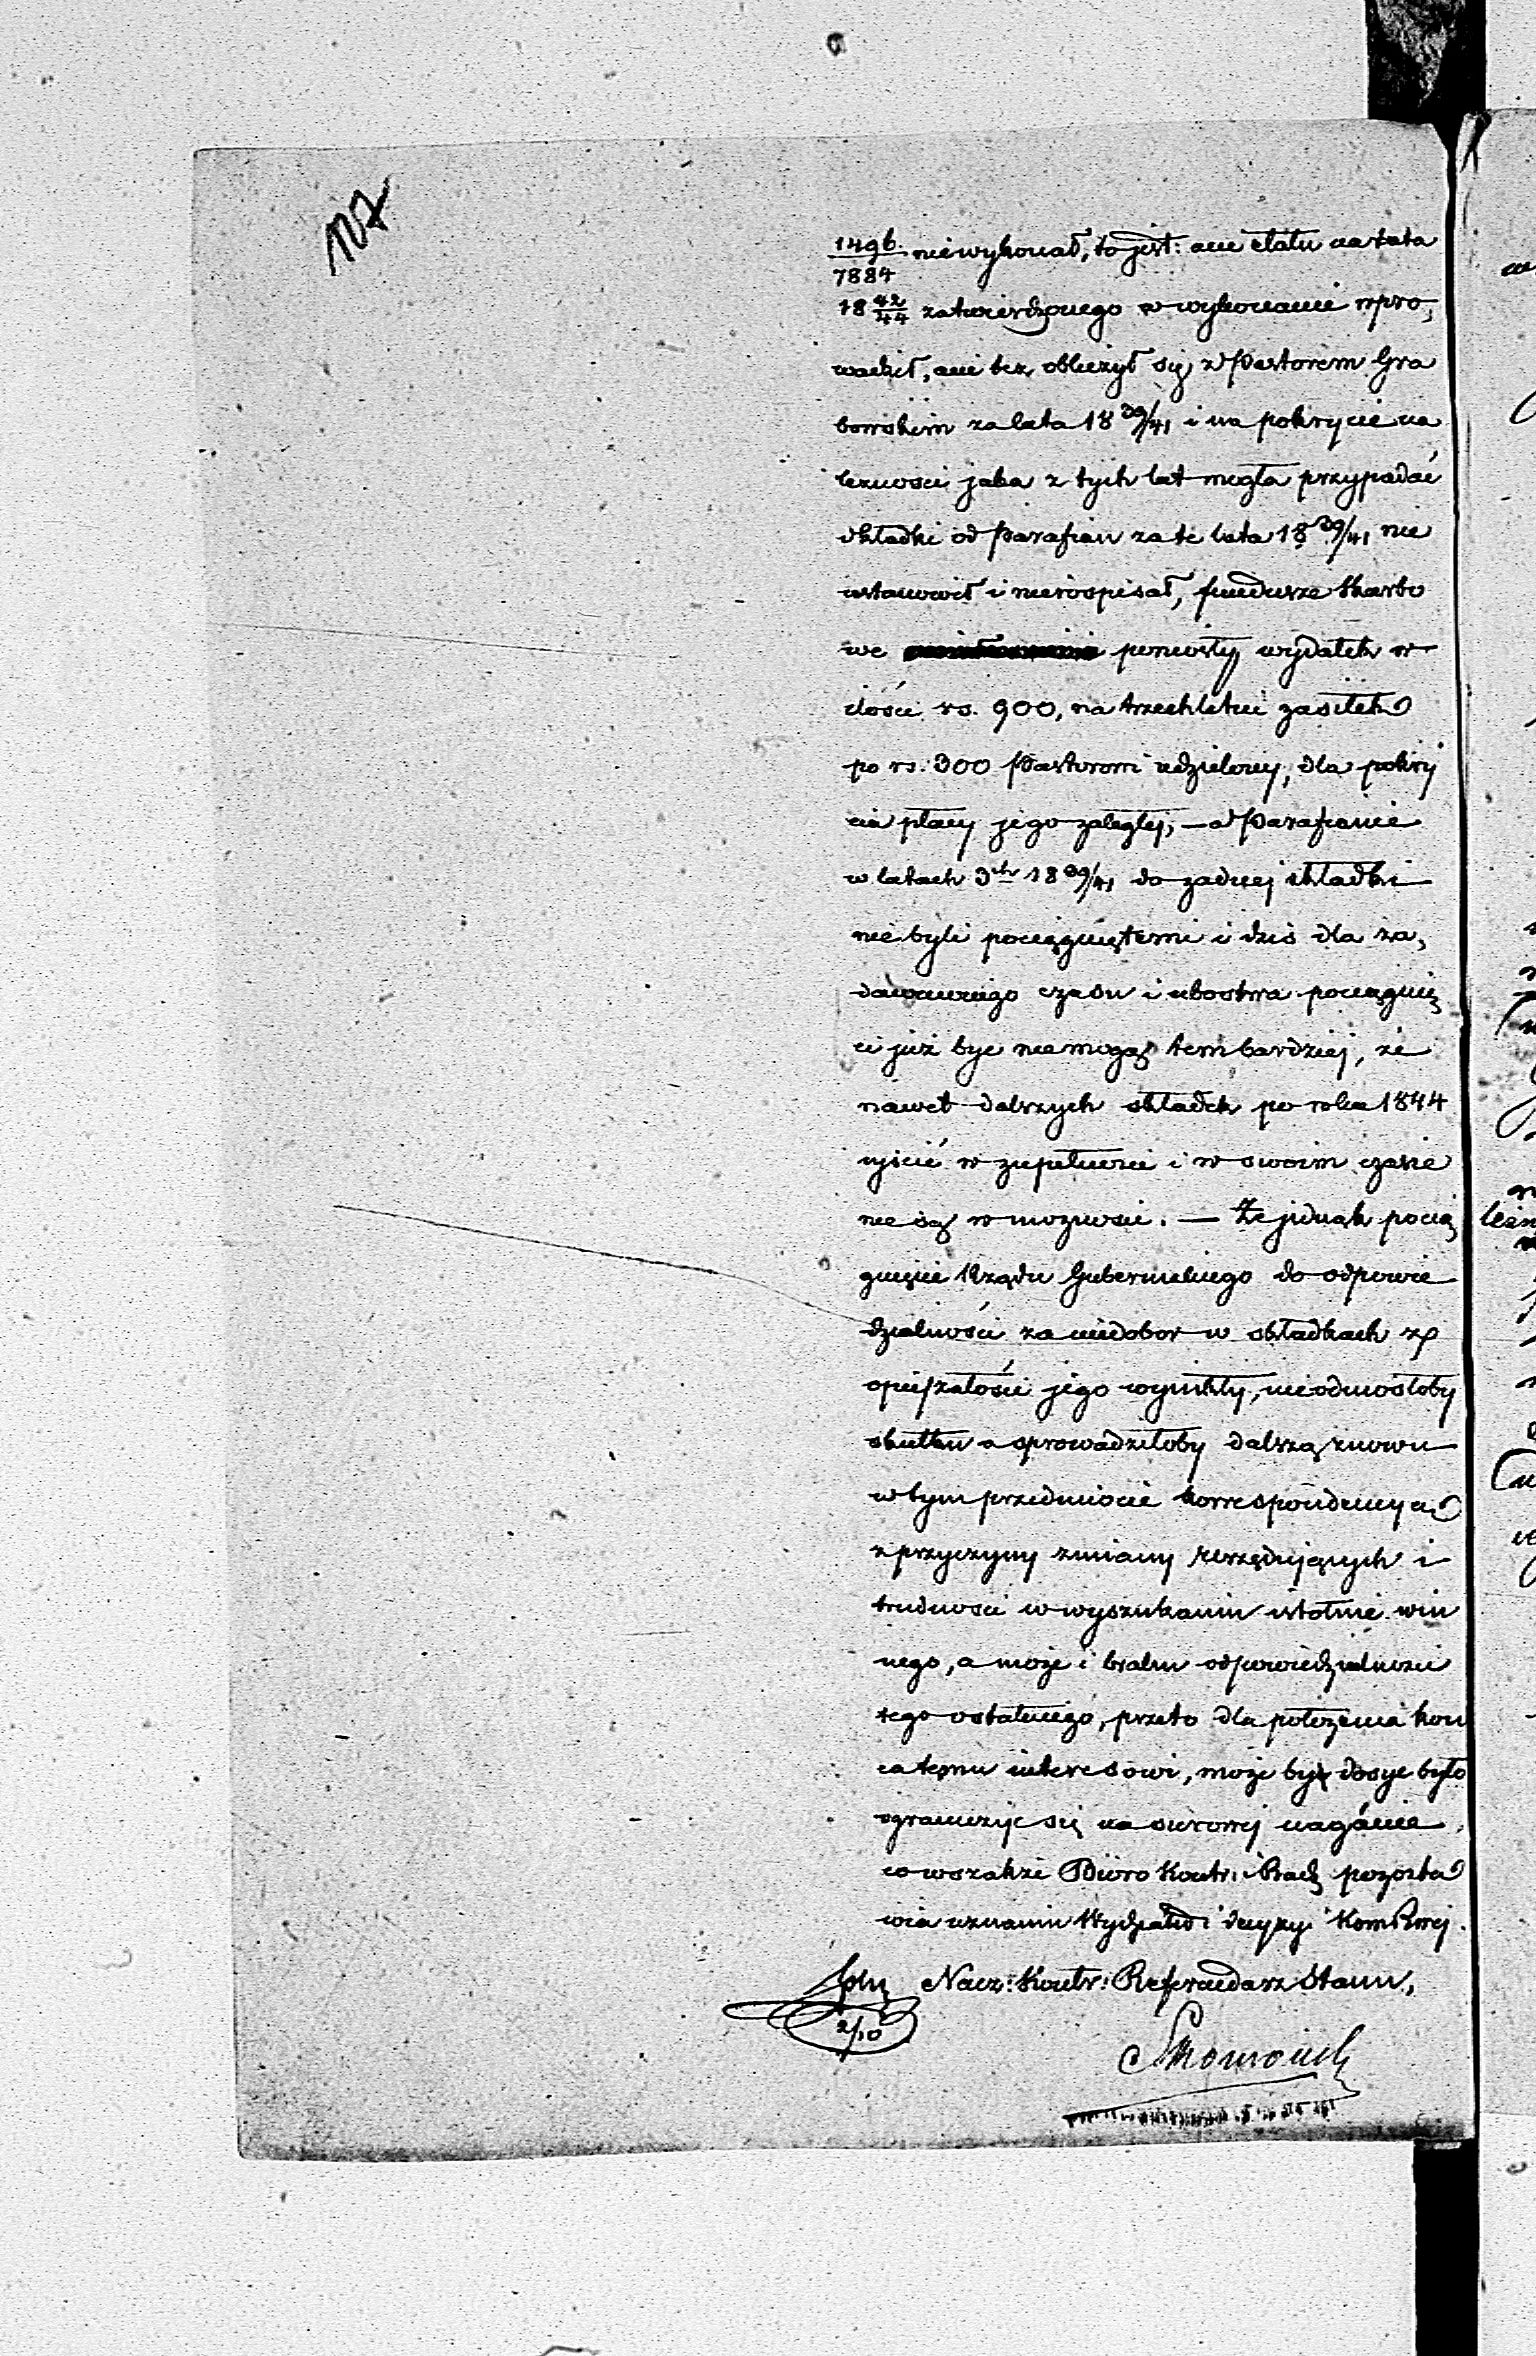 117
1496/7884 niewykonał, to jest: ani etatu na lata
18 42/44 zatwierdzonego w wykonanie wpro,
wadził, ani też obliczył się z Pastorem Gra
bowskim za lata 18 39/41 i na pokrycie na
leżności jaka z tych lat mogła przypadać
składki od Parafian za te lata 18 39/41 nie
ustanowił i nierospisał, fundusze skarbo
we poniosły wydatek w
ilości rs. 900, na trzechletni zasiłek
po rs: 300 Pastorowi udzielony, dla pokry
cia płacy jego zaległej, — a Parafianie
w latach 3ch 18 39/41 do żadnej składki
nie byli pociągniętemi i dziś dla za,
dawnionego czasu i ubostwa pociągnię
ci już być nie mogą tem bardziej, że
nawet dalszych składek po roku 1844
uiścić w zupełności i w swoim czasie
nie są w możności. — Że jednak pocią
gnięcie Rządu Gubernialnego do odpowie
dzialności za niedobor w składkach z
opieszałości jego wynikły, nieodniosłoby
skutku a sprowadziłoby dalszą znowu
w tym przedmiocie korrespondencyą
z przyczyny zmiany urzędujących i
trudności w wyszukaniu istotnie win
nego, a może i braku odpowiedzialności
tego ostatniego, przeto dla położenia koń
ca temu interesowi, może by dosyć było
ograniczyć się na surowej naganie,
co wszakże Biuro Kontr: i Rach pozosta
wia uznaniu Wydziałów i decyzyi Kom: Rząej.
Nacz: Kontr: Referendarz Stanu,
2/10